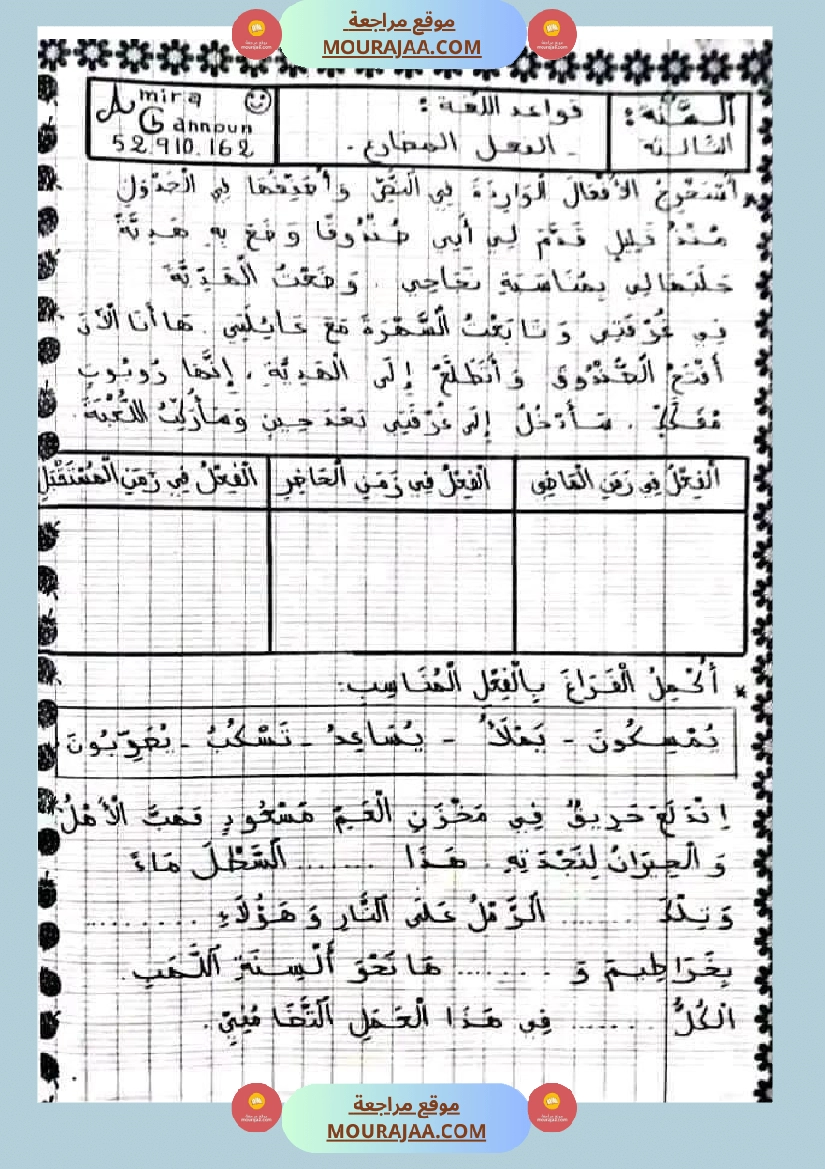 موقع مراجعة
MOURAJAA.COM
السَّنَة:
الثالثة
قواعد اللغة:
- الفعل المضارع.
Amira
Gannoun
52.910.162
أَسْتَخْرِجُ الأَفْعَالَ الْوَارِدَةَ فِي النَّصِّ وَأُصَنِّفُهَا فِي الْجَدْوَلِ
مُنْذُ قَلِيلٍ قَدَّمَ لِي أَبِي صُنْدُوقًا وَضَعَ بِهِ هَدِيَّةً
جَلَبَهَا لِي بِمُنَاسَبَةِ نَجَاحِي . وَضَعْتُ الْهَدِيَّةَ
فِي غُرْفَتِي وَتَابَعْتُ السَّهْرَةَ مَعَ عَائِلَتِي . هَا أَنَا الْآنَ
أَفْتَحُ الصُّنْدُوقَ وَأَتَطَلَّعُ إِلَى الْهَدِيَّةِ . إِنَّهَا رُوبُوتٌ
مُفَكَّكٌ . سَأَدْخُلُ إِلَى غُرْفَتِي بَعْدَ حِينٍ وَسَأُرَكِّبُ اللُّعْبَةَ .
الْفِعْلُ فِي زَمَنِ الْمَاضِي
الْفِعْلُ فِي زَمَنِ الْحَاضِرِ
الْفِعْلُ فِي زَمَنِ الْمُسْتَقْبَلِ
* أُكْمِلُ الْفَرَاغَ بِالْفِعْلِ الْمُنَاسِبِ:
يُمْسِكُونَ - يَمْلَأُ - يُسَاعِدُ - تَسْكُبُ - يُصَوِّبُونَ
اِنْدَلَعَ حَرِيقٌ فِي مَخْزَنِ الْعَمِّ مَسْعُودٍ فَهَبَّ الْأَهْلُ
وَالْجِيرَانُ لِنَجْدَتِهِ . هَذَا ....... السَّطْلَ مَاءً
وَتِلْكَ ....... الرَّمْلَ عَلَى النَّارِ وَهَؤُلَاءِ .........
بِخَرَاطِيمَ وَ ....... هَا نَحْوَ أَلْسِنَةِ اللَّهَبِ
الْكُلُّ ....... فِي هَذَا الْعَمَلِ التَّضَامُنِيِّ .
موقع مراجعة
MOURAJAA.COM